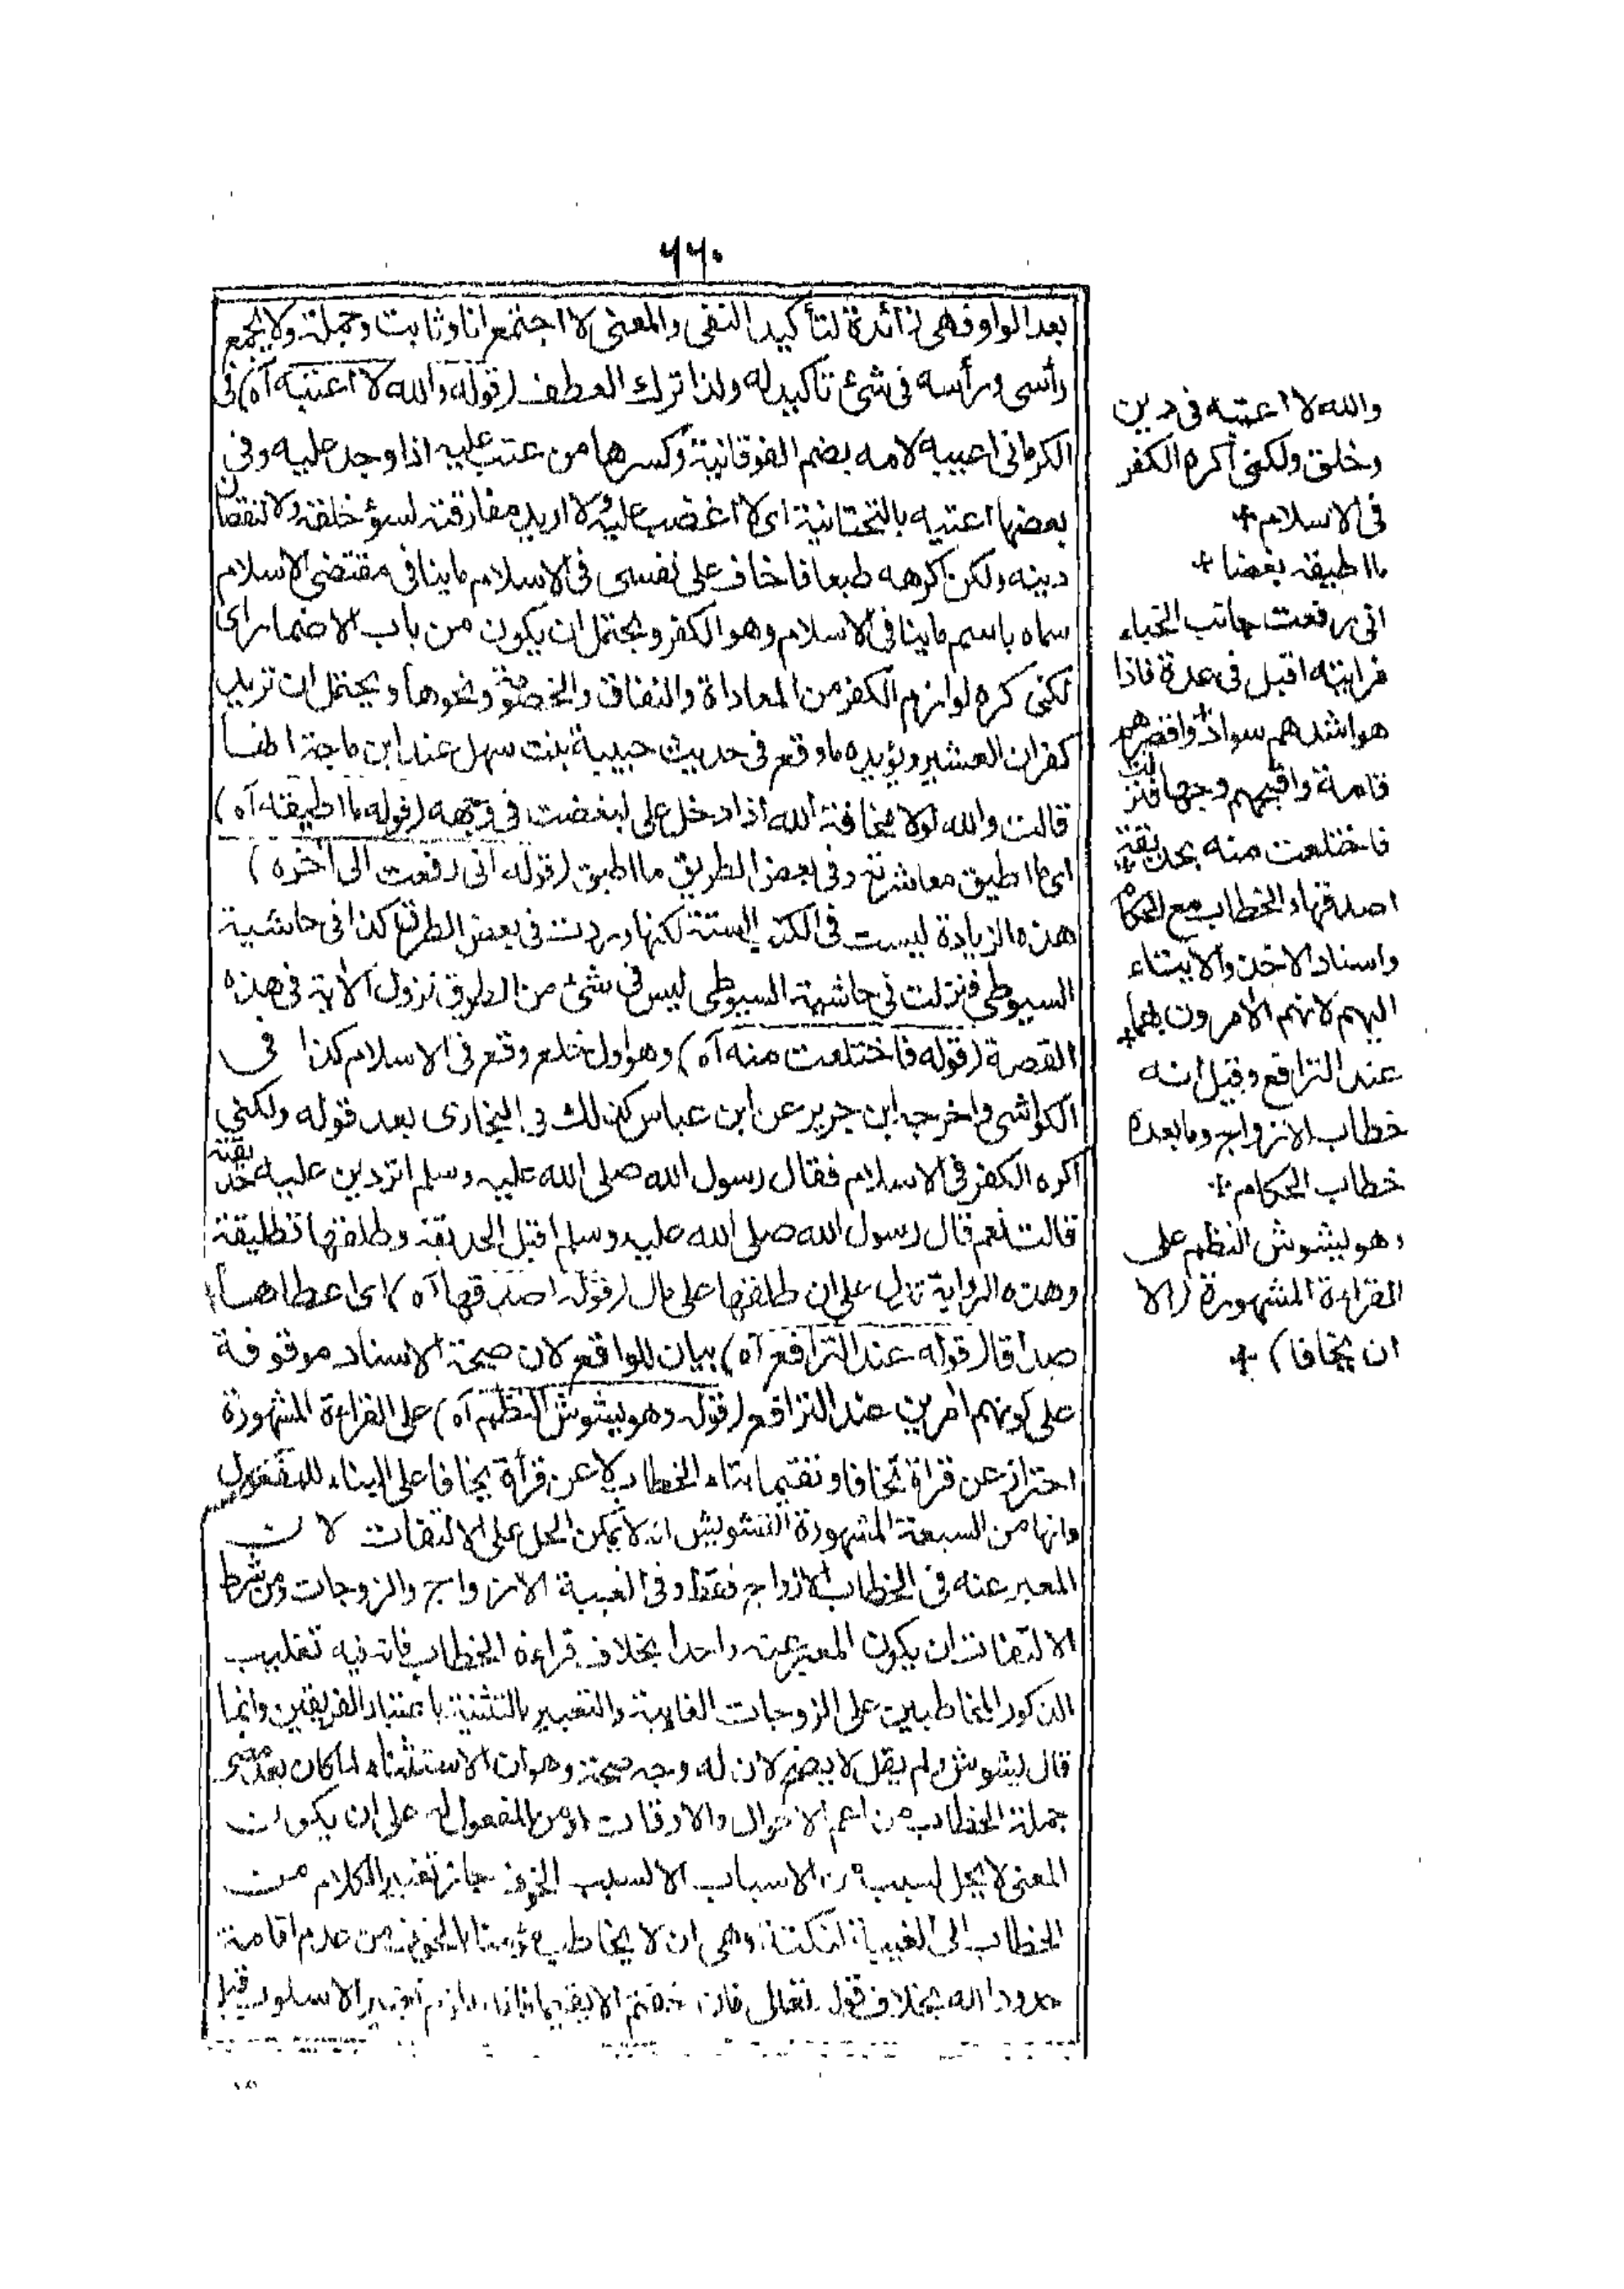 ٦٦٠
بعد الواو فهي زائدة لتأكيد النفى والمعنى لا اجتمع انا وثابت وجملة ولا يجمع
رأسى ورأسه فى شئ تاكيد له ولذا ترك العطف (قوله والله لا اعتبه آه) فى
الكرمانى اعيبه لامه بضم الفوقانية وكسرها من عتب عليه اذا وجد عليه وفى
بعضها اعتبه بالتحتانية اى لا اغضب عليه ولا اريد مفارقته لسؤ خلقه ولا لنقصان
دينه ولكن اكرهه طبعا فاخاف على نفسى فى الاسلام ما ينافى مقتضى الاسلام
سماه باسم ما ينافى الاسلام وهو الكفر ويحتمل ان يكون من باب الاضمار اى
لكنى كره لوازم الكفر من المعاداة والنفاق والخصومة ونحوها ويحتمل ان تريد
كفران العشير ويؤيده ما وقع فى حديث حبيبة بنت سهل عند ابن ماجة
قالت والله لولا مخافة الله اذا دخل على لبغضت فى وجهه (قوله ما اطيقه آه)
اى ما اطيق معاشرته وفى بعض الطريق ما اطيق (قوله انى رفعت الى آخره)
هذه الزيادة ليست فى الكتب الستة لكنها وردت فى بعض الطرق كذا فى حاشية
السيوطى فنزلت فى حاشية السيوطى ليس فى شئ من الطريق نزول الآية فى هذه
القصة (قوله فاختلعت منه آه) وهو اول خلع وقع فى الاسلام كذا فى
الكواشى واخرجه ابن جرير عن ابن عباس كذلك فى البخارى بعد قوله ولكنى
اكره الكفر فى الاسلام فقال رسول الله صلى الله عليه وسلم اتردين عليه حديقته
قالت نعم قال رسول الله صلى الله عليه وسلم اقبل الحديقة وطلقها تطليقة
وهذه الرواية تدل على ان طلقها على مال (قوله اصدقها آه) اى اعطاها
صداقا (قوله عند الترافع آه) بيان للواقع لان صحة الاسناد موقوفة
على كونهم آمرين عند الترافع (قوله وهو يشوش النظم آه) على القراءة المشهورة
احتراز عن قراة تخافا وتقيما بتاء الخطاب لا عن قرأة يخافا على البناء للمفعول
وانها من السبعة المشهورة التشويش انه لا يمكن الحمل على الالتفات لان
المعبر عنه فى الخطاب الازواج فقط وفى الغيبة الازواج والزوجات ومن شرط
الالتفات ان يكون المعبر عنه واحدا بخلاف قراءة الخطاب فانه فيه تغليب
الذكور المخاطبين على الزوجات الغايبة والتعبير بالتثنية باعتبار الفريقين وانما
قال يشوش ولم يقل لا يصح لان له وجه صحة وهو ان الاستثناء لما كان بعد مضى
جملة الخطاب من اعم الاحوال والاوقات او من المفعول له على ان يكون
المعنى لا يحل لسبب من الاسباب الا لسبب الخوف جاز تغيير الكلام من
الخطاب الى الغيبة لنكتة وهى ان لا يخاطب بالخوف من عدم اقامة
حدود الله بخلاف قوله تعالى فان خفتم الا يقيما تغيير الاسلوب قبل
والله لا اعتبه فى دين
وخلق ولكنى أكره الكفر
فى الاسلام +
ما اطيقه بغضا +
انى رفعت جانب الخباء
فرايته اقبل فى عدة فاذا
هو اشدهم سوادا واقصرهم
قامة واقبحهم وجها فنزلت
فاختلعت منه بحديقة
اصدقها والخطاب مع الحكام
واسناد الاخذ والايتاء
اليهم لانهم الآمرون بهما +
عند الترافع وقيل انه
خطاب الازواج وما بعده
خطاب الحكام +
وهو يشوش النظم على
القراءة المشهورة (الا
ان يخافا) +